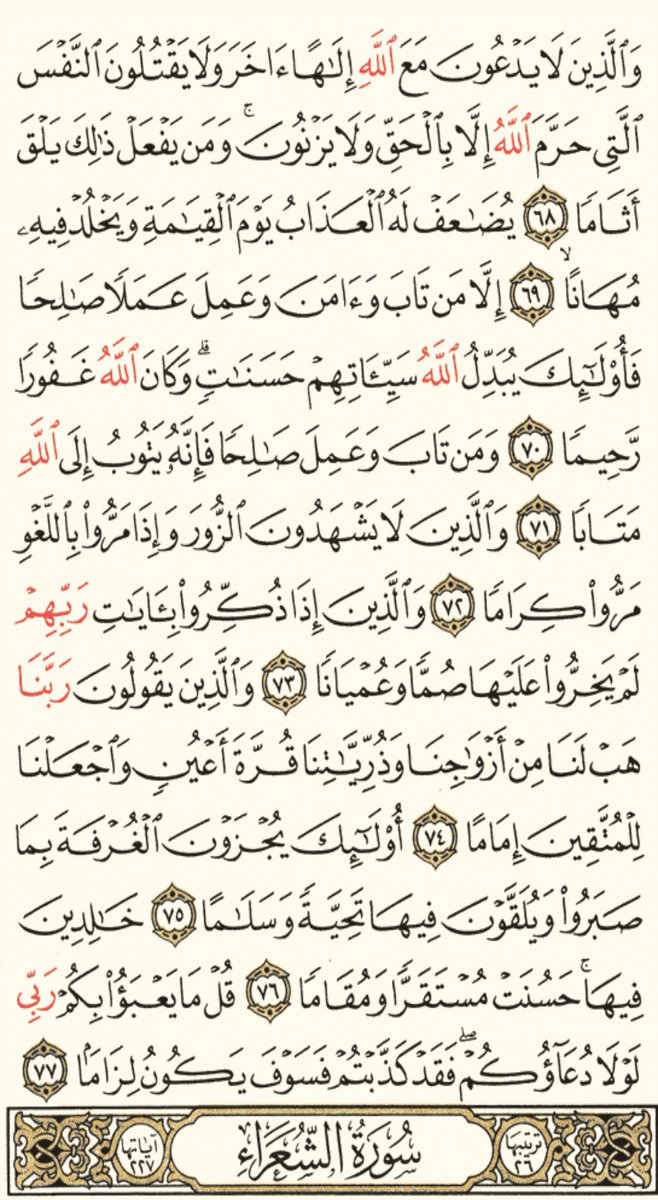 وَٱلَّذِينَ لَا يَدۡعُونَ مَعَ ٱللَّهِ إِلَٰهًا ءَاخَرَ وَلَا يَقۡتُلُونَ ٱلنَّفۡسَ
ٱلَّتِي حَرَّمَ ٱللَّهُ إِلَّا بِٱلۡحَقِّ وَلَا يَزۡنُونَۚ وَمَن يَفۡعَلۡ ذَٰلِكَ يَلۡقَ
أَثَامٗا ٦٨ يُضَٰعَفۡ لَهُ ٱلۡعَذَابُ يَوۡمَ ٱلۡقِيَٰمَةِ وَيَخۡلُدۡ فِيهِۦ
مُهَانًا ٦٩ إِلَّا مَن تَابَ وَءَامَنَ وَعَمِلَ عَمَلٗا صَٰلِحٗا
فَأُوْلَٰٓئِكَ يُبَدِّلُ ٱللَّهُ سَيِّـَٔاتِهِمۡ حَسَنَٰتٖۗ وَكَانَ ٱللَّهُ غَفُورٗا
رَّحِيمٗا ٧٠ وَمَن تَابَ وَعَمِلَ صَٰلِحٗا فَإِنَّهُۥ يَتُوبُ إِلَى ٱللَّهِ
مَتَابٗا ٧١ وَٱلَّذِينَ لَا يَشۡهَدُونَ ٱلزُّورَ وَإِذَا مَرُّواْ بِٱللَّغۡوِ
مَرُّواْ كِرَامٗا ٧٢ وَٱلَّذِينَ إِذَا ذُكِّرُواْ بِـَٔايَٰتِ رَبِّهِمۡ
لَمۡ يَخِرُّواْ عَلَيۡهَا صُمّٗا وَعُمۡيَانٗا ٧٣ وَٱلَّذِينَ يَقُولُونَ رَبَّنَا
هَبۡ لَنَا مِنۡ أَزۡوَٰجِنَا وَذُرِّيَّٰتِنَا قُرَّةَ أَعۡيُنٖ وَٱجۡعَلۡنَا
لِلۡمُتَّقِينَ إِمَامًا ٧٤ أُوْلَٰٓئِكَ يُجۡزَوۡنَ ٱلۡغُرۡفَةَ بِمَا
صَبَرُواْ وَيُلَقَّوۡنَ فِيهَا تَحِيَّةٗ وَسَلَٰمًا ٧٥ خَٰلِدِينَ
فِيهَاۚ حَسُنَتۡ مُسۡتَقَرّٗا وَمُقَامٗا ٧٦ قُلۡ مَا يَعۡبَؤُاْ بِكُمۡ رَبِّي
لَوۡلَا دُعَآؤُكُمۡۖ فَقَدۡ كَذَّبۡتُمۡ فَسَوۡفَ يَكُونُ لِزَامَۢا ٧٧
ترتيبها ٢٦ سُورَةُ الشُّعَرَاءِ آياتها ٢٢٧